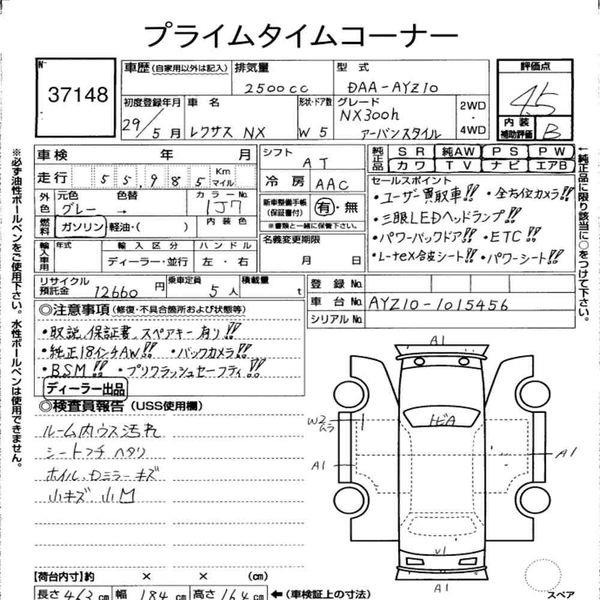 プライムタイムコーナー
No 37148
車歴(自家用以外は記入) 排気量 2500cc 型式 DAA-AYZ10
初度登録年月 29年 5月 車名 レクサス NX 形状・ドア数 W 5 グレード NX300h アーバンスタイル 2WD・4WD
評価点 4.5
内装補助評価 B
車検 年 月 シフト AT
走行 55,985 Km マイル 冷房 AAC
外色 元色 グレー → 色替 1J7
燃料 ガソリン・軽油・( ) 内装色
新車整備手帳(保証書付) 有・無
※書類と一緒に保管下さい。
輸入車用 年式 輸入区分 ディーラー・並行 ハンドル 左・右
名義変更期限 月 日
リサイクル預託金 12660円 乗車定員 5人 積載量 t
純正品 SR 純正AW PS PW
カワ TV ナビ エアB
セールスポイント
・ユーザー買取車!! ・全方位カメラ!!
・三眼LEDヘッドランプ!!
・パワーバックドア!! ・ETC!!
・L-tex合皮シート!! ・パワーシート!!
登録No.
車台No. AYZ10-1015456
シリアルNo.
◎注意事項(修復・不具合箇所および状態等)
・取説、保証書、スペアキー有り!!
・純正18インチAW!! ・バックカメラ!!
・BSM!! ・プリクラッシュセーフティ!!
ディーラー出品
◎検査員報告(USS使用欄)
ルーム内ウス汚れ
シートフチヘタリ
ホイル、Dミラーキズ
小キズ 小凹
A1
トビA
W2 ムラ
A1
A1
V1
A1
スペア
【荷台内寸】約 × × (cm)
長さ 463cm 幅 184cm 高さ 164cm ←(車検証上の寸法)
※必ず油性ボールペンをご使用下さい。水性ボールペンは使用できません。
←純正品に限り該当に○をつけて下さい。